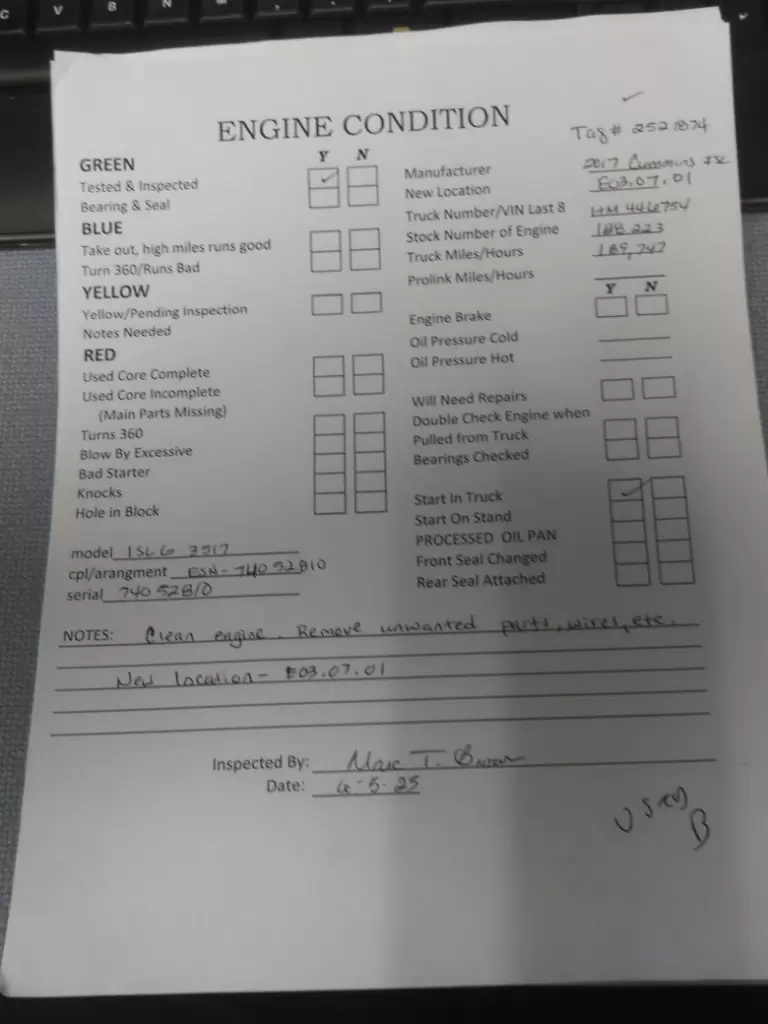 ENGINE CONDITION
Tag# 2521874
Y N
GREEN
Tested & Inspected
Bearing & Seal
BLUE
Take out, high miles runs good
Turn 360/Runs Bad
YELLOW
Yellow/Pending Inspection
Notes Needed
RED
Used Core Complete
Used Core Incomplete
(Main Parts Missing)
Turns 360
Blow By Excessive
Bad Starter
Knocks
Hole in Block
model ISL G
cpl/arangment ESN- 74052810
serial 74052810
Manufacturer 2017 Cummins ISL
New Location E03.07.01
Truck Number/VIN Last 8 HM446754
Stock Number of Engine 188223
Truck Miles/Hours 189,747
Prolink Miles/Hours
Y N
Engine Brake
Oil Pressure Cold
Oil Pressure Hot
Will Need Repairs
Double Check Engine when
Pulled from Truck
Bearings Checked
Start In Truck
Start On Stand
PROCESSED OIL PAN
Front Seal Changed
Rear Seal Attached
NOTES: Clean engine. Remove unwanted parts, wires, etc.
New location- E03.07.01
Inspected By: T.
Date: 6-5-25
USED
B